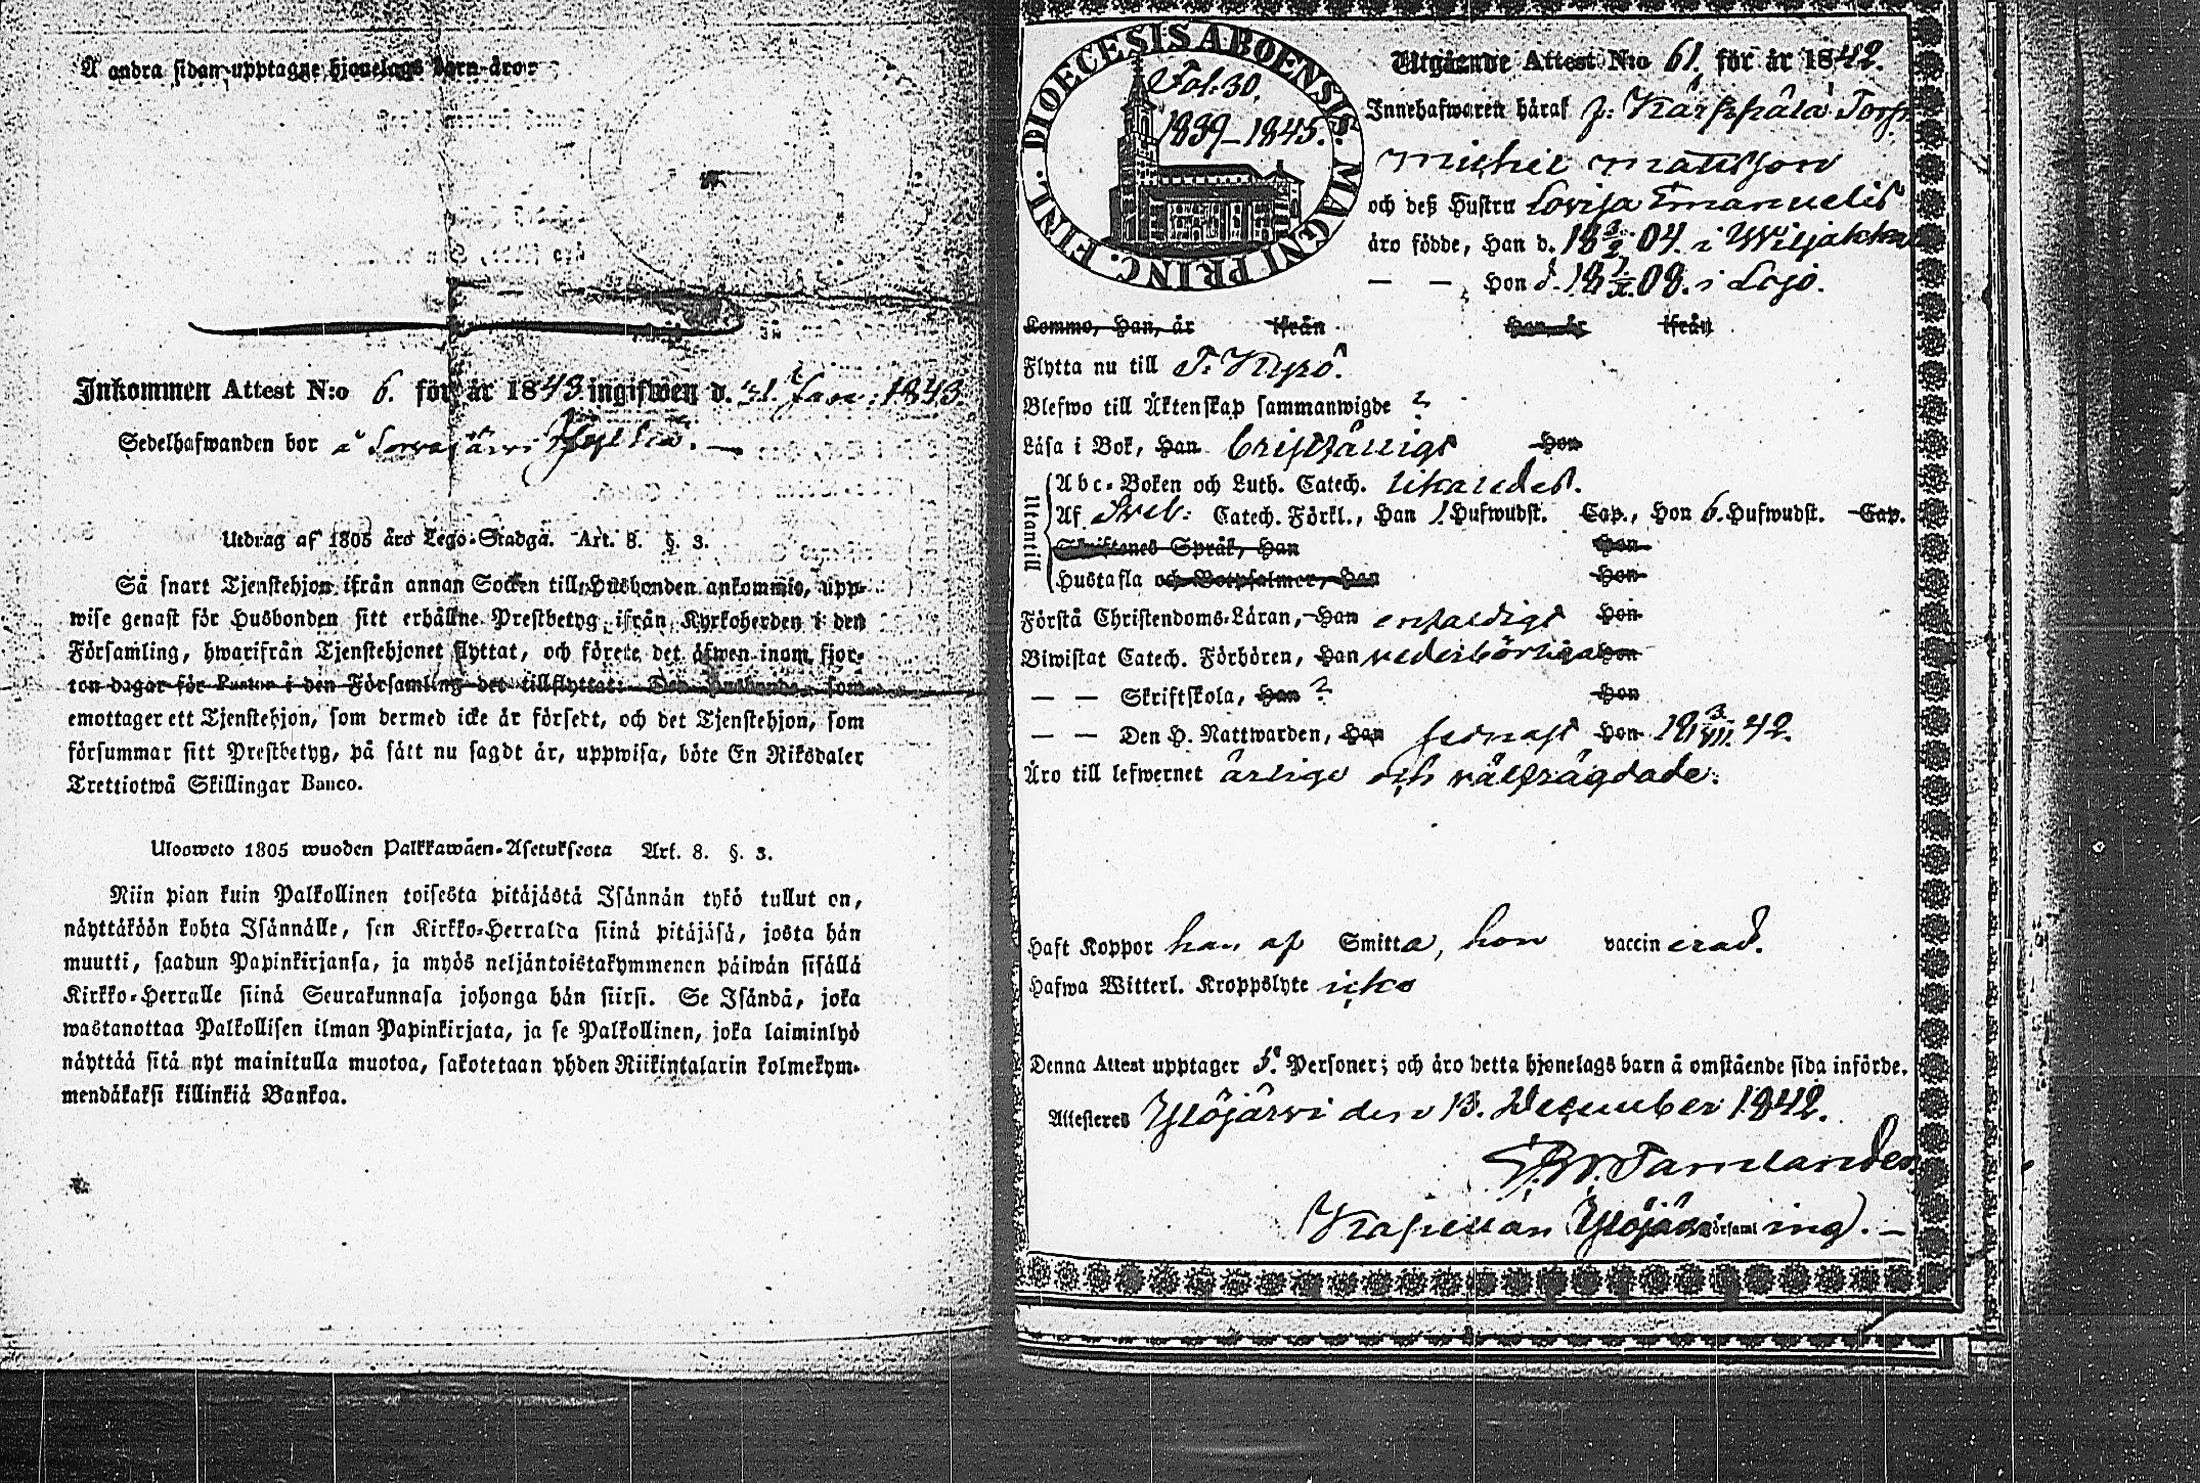 Å andra sidan upptagne hjonelags barn äro:
Inkommen Attest N:o 6. för år 1843 ingifwen d. 31. Jan: 1843.
Sedelhafwanden bor å
Utdrag af 1805 års Lego-Stadga. Art. 8. §. 3.
Så snart Tjenstehjon ifrån annan Socken till Husbonden ankommit, upp-
wise genast för Husbonden sitt erhållne Prestbetyg ifrån Kyrkoherden i den
Församling, hwarifrån Tjenstehjonet flyttat, och förete det äfwen inom fjor-
ton dagar för Pastor i den Församling det tillflyttat: Den Husbonde, som
emottager ett Tjenstehjon, som dermed icke är försedt, och det Tjenstehjon, som
försummar sitt Prestbetyg, på sätt nu sagdt är, uppwisa, böte En Riksdaler
Trettiotwå Skillingar Banco.
Ulosweto 1805 wuoden Palkkawäen-Asetuksesta Art. 8. §. 3.
Niin pian kuin Palkollinen toisesta pitäjästä Isännän tykö tullut on,
näyttäköön kohta Isännälle, sen Kirkko-Herralda siinä pitäjäsä, josta hän
muutti, saadun Papinkirjansa, ja myös neljäntoistakymmenen päiwän sisällä
Kirkko-Herralle siinä Seurakunnasa johonga hän siirsi. Se Isändä, joka
wastanottaa Palkollisen ilman Papinkirjata, ja se Palkollinen, joka laiminlyö
näyttää sitä nyt mainitulla muotoa, sakotetaan yhden Riikintalarin kolmekym-
mendäkaksi killinkiä Bankoa.
DIOECESIS ABOENSIS. MAGNI PRINC. FINL.
Fol: 30.
1839–1845.
Utgående Attest N:o 61. för år 1842.
Innehafwaren häraf f: Kärppälä Torp.
Michel Mattsson
och deß Hustru Lovisa Emanuelsd
äro födde, Han d. 18 3/2 04. i Wiljakkala
— — Hon d. 18 08. i Lojo.
Komne, Han, år ifrån Hon, år ifrån
Flytta nu till T. Kyrö.
Blefwo till Äktenskap sammanwigde ?
Läsa i Bok, Han bristfälligt Hon
Utantill
Abc-Boken och Luth. Catech. likaledes.
Af Sveb: Catech. Förkl., Han 1. Hufwudst. Cap., Hon 6. Hufwudst. Cap.
Skriftenes Språk, Han Hon
Hustafla och Botpsalmer, Han Hon
Förstå Christendoms-Läran, Han enfaldigt Hon
Biwistat Catech. Förhören, Han vederbörligen Hon
— — Skriftskola, Han ? Hon
— — Den H. Nattwarden, Han senast Hon 18 3/VII 42.
Äro till lefwernet ärlige och välfrägdade.
Haft Koppor han af Smitta, hon vaccinerad.
Hafwa Witterl. Kroppslyte icke
Denna Attest upptager 5. Personer; och äro detta hjonelags barn å omstående sida införde.
Attesteres Ylöjärvi den 13. December 1842.
Tamlander
Kapellan i Ylöjärvi församling. —